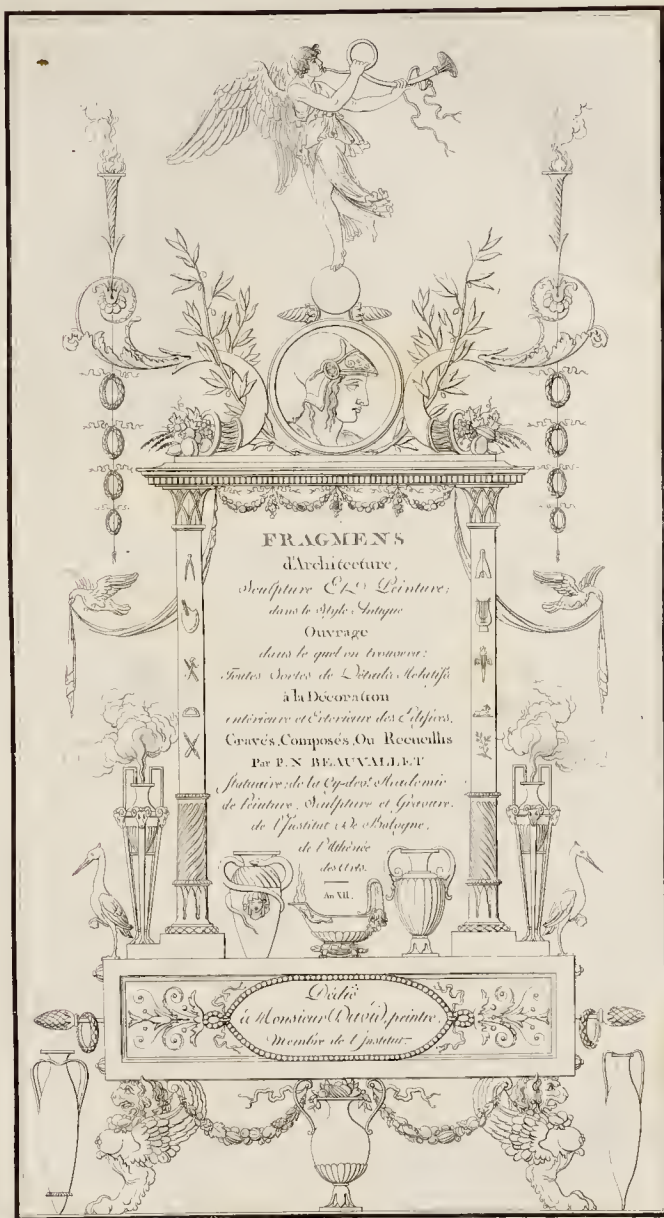 FRAGMENS
d'Architecture,
Sculpture Et Peinture;
dans le Style Antique
Ouvrage
dans le quel on trouvera:
Toutes Sortes de Détails Relatifs
à la Décoration
intérieure et Exterieur des Edifices,
Gravés, Composés, Ou Recueillis
Par P. N. BEAUVALLET
Statuaire; de la Cy-devt. Academie
de Peinture, Sculpture et Gravure.
de l'Institut De Bologne,
de l'Athénée
des Arts.
An XII.
Dédié
à Monsieur David, peintre,
Membre de l'Institut